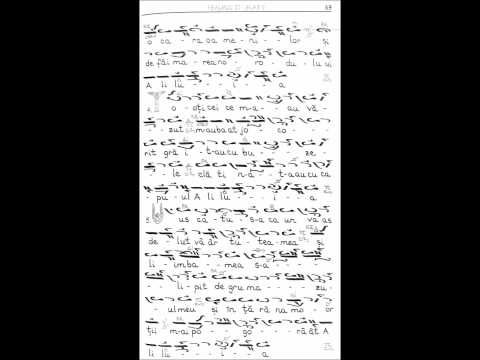 o ca - ra oa me - ni - lor și
de făi ma - rea no - ro - du - lu ui
A li lu - - - i - a
T o - oți cei ce m-a - au vă -
- - zut m-au ba at jo - co - -
rit gră i - t-au cu bu - - ze -
- - le clă ti - na - t-a au cu ca
- pu - ul A li lu - - i - a
5. U us ca - tu - s-a ca un va as
de - lut vâ âr tu - tea mea și
li - im ba - - mea s-a - - -
li - pit de gru ma - - - zu -
- ul meu și în țâ râ na mo - or
ții m-ai po - go - - râ ât A
li lu - - i - a